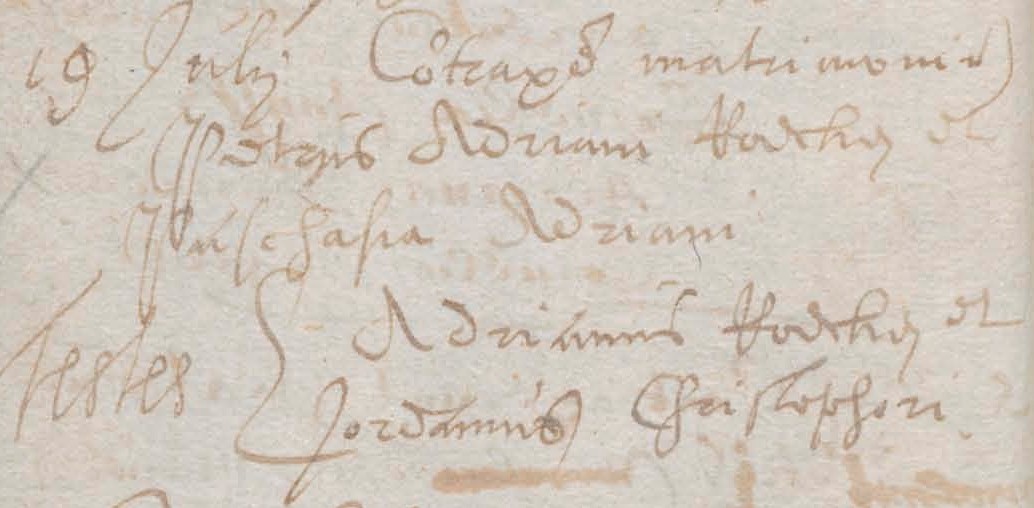 19 Julij Cōtraxē matrimoniū
Petrus Adriani Rockx et
Paschasia Adriani
Testes Adrianus Rockx et
Jordanus Christophori